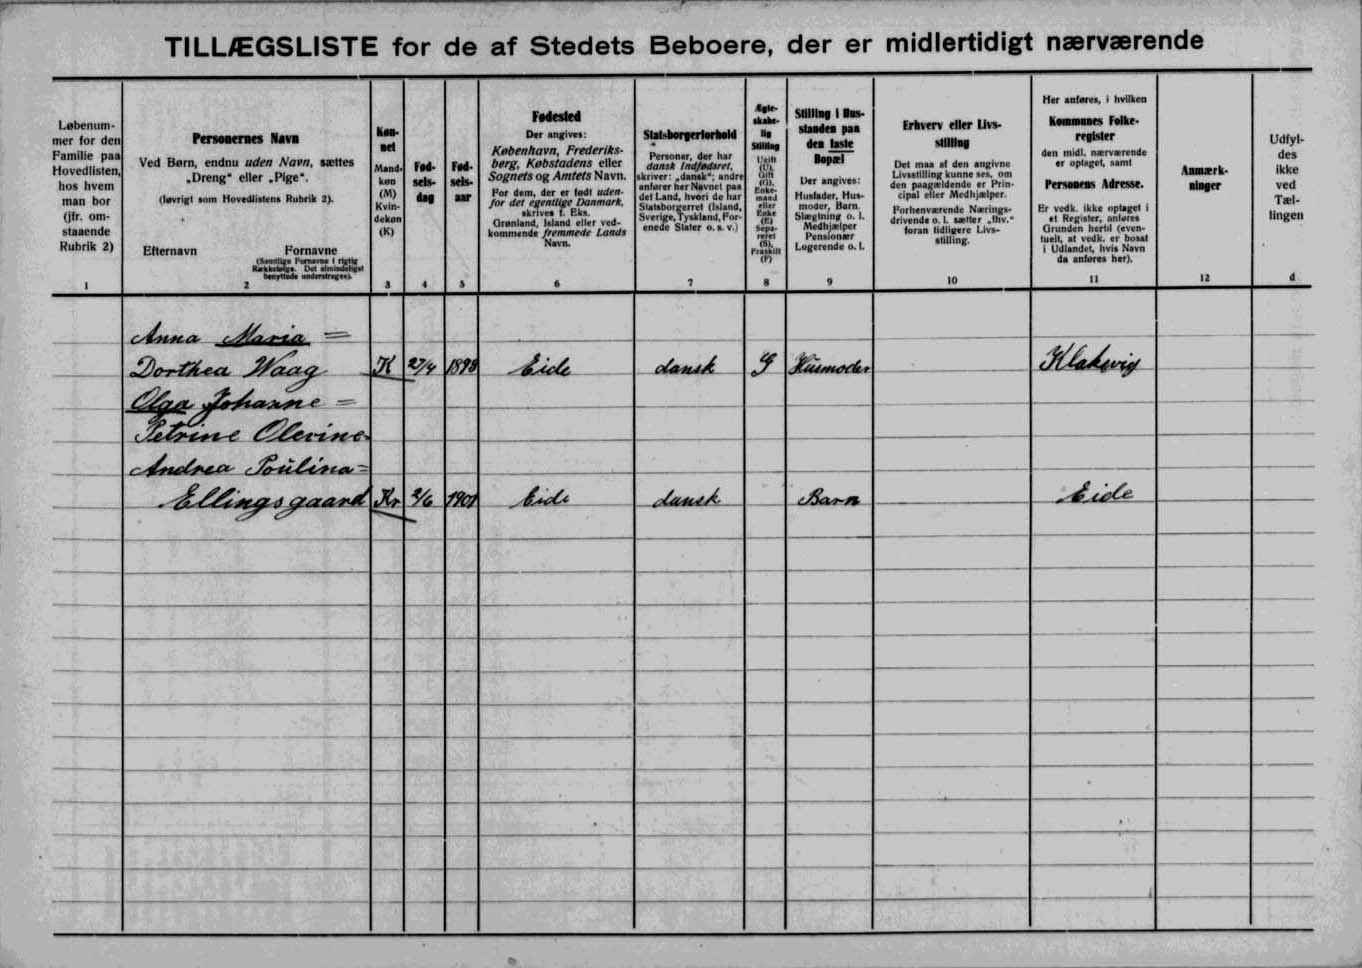 TILLÆGSLISTE for de af Stedets Beboere, der er midlertidigt nærværende
Løbenum-
mer for den
Familie paa
Hovedlisten,
hos hvem
man bor
(jfr. om-
staaende
Rubrik 2)
1
Personernes Navn
Ved Børn, endnu uden Navn, sættes
„Dreng“ eller „Pige“.
(Iøvrigt som Hovedlistens Rubrik 2).
Efternavn Fornavne
(Samtlige Fornavne i rigtig
Rækkefølge. Det almindeligst
benyttede understreges).
2
Køn-
net
Mand-
køn
(M)
Kvin-
dekøn
(K)
3
Fød-
sels-
dag
4
Fød-
sels-
aar
5
Fødested
Der angives:
København, Frederiks-
berg, Købstadens eller
Sognets og Amtets Navn.
For dem, der er født uden-
for det egentlige Danmark,
skrives f. Eks.
Grønland, Island eller ved-
kommende fremmede Lands
Navn.
6
Statsborgerforhold
Personer, der har
dansk Indfødsret,
skriver: „dansk“; andre
anfører her Navnet paa
det Land, hvori de har
Statsborgerret (Island,
Sverige, Tyskland, For-
enede Stater o. s. v.)
7
Ægte-
skabe-
lig
Stilling
Ugift
(U),
Gift
(G),
Enke-
mand
eller
Enke
(E)
Sepa-
reret
(S),
Fraskilt
(F)
8
Stilling i Hus-
standen paa
den faste
Bopæl
Der angives:
Husfader, Hus-
moder, Barn,
Slægtning o. l.
Medhjælper
Pensionær
Logerende o. l.
9
Erhverv eller Livs-
stilling
Det maa af den angivne
Livsstilling kunne ses, om
den paagældende er Prin-
cipal eller Medhjælper.
Forhenværende Nærings-
drivende o. l. sætter „fhv.“
foran tidligere Livs-
stilling.
10
Her anføres, i hvilken
Kommunes Folke-
register
den midl. nærværende
er optaget, samt
Personens Adresse.
Er vedk. ikke optaget i
et Register, anføres
Grunden hertil (even-
tuelt, at vedk. er bosat
i Udlandet, hvis Navn
da anføres her).
11
Anmærk-
ninger
12
Udfyl-
des
ikke
ved
Tæl-
lingen
d
Anna Maria =
Dorthea Waag K 27/4 1898 Eide dansk G Husmoder Klaksvig
Olga Johanne =
Petrine Olevine-
Andrea Poulina=
Ellingsgaard Kv 2/6 1901 Eide dansk Barn Eide